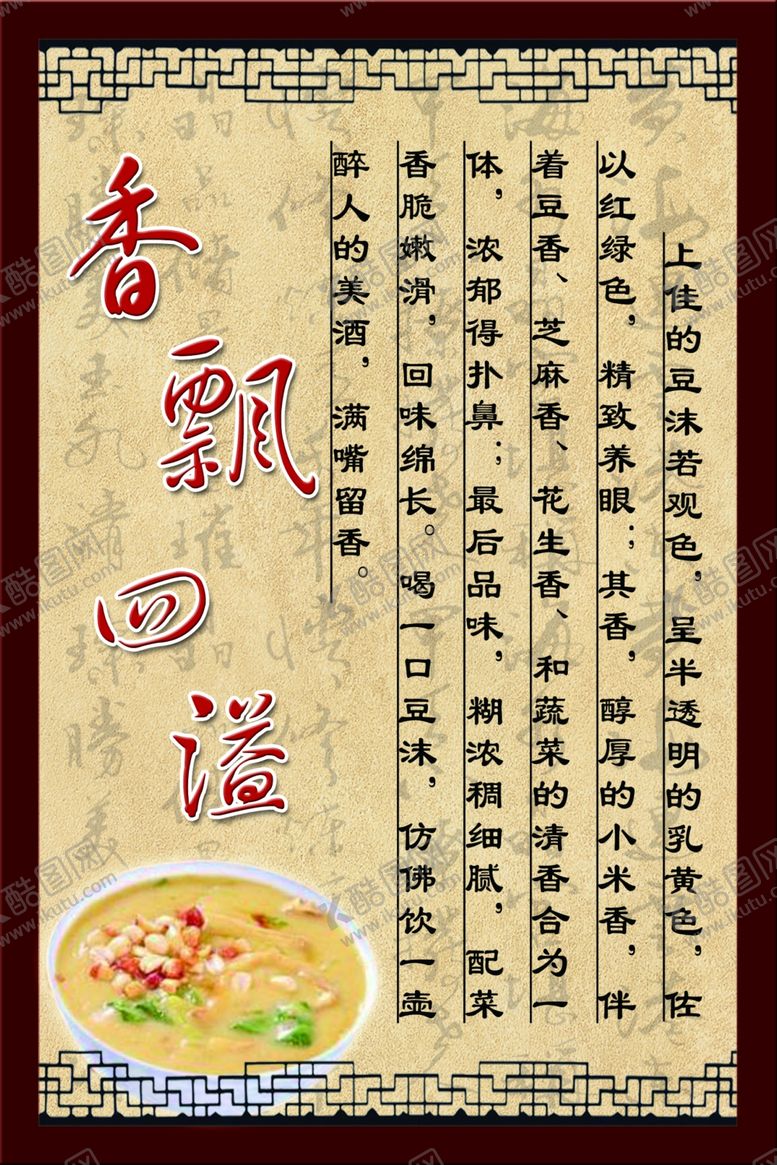 香飘四溢
上佳的豆沫若观色，呈半透明的乳黄色，佐
以红绿色，精致养眼；其香，醇厚的小米香，伴
着豆香、芝麻香、花生香、和蔬菜的清香合为一
体，浓郁得扑鼻；最后品味，糊浓稠细腻，配菜
香脆嫩滑，回味绵长。喝一口豆沫，仿佛饮一壶
醉人的美酒，满嘴留香。
酷图网
www.ikutu.com